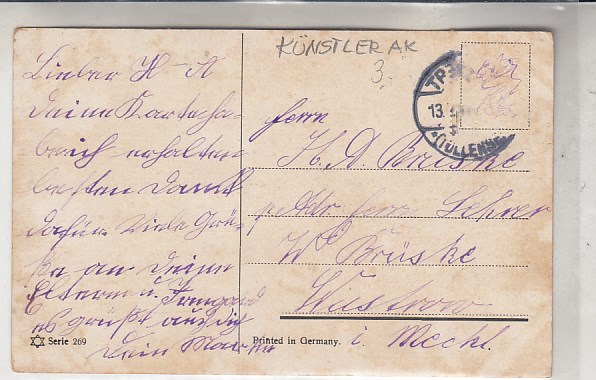 KÜNSTLER AK
3.
Lieber H-A
Deine Karte ha-
be ich erhalten
besten Dank
dafür. Viele Grü-
ße an Deine
Eltern u. Irmgard
es grüßt auch Dich
Dein
Herrn
H. A. Brüske
p. Adr. Herr Lehrer
W. Brüske
Wustrow
i. Meckl.
13.
(TOLLENSE
Serie 269
Printed in Germany.